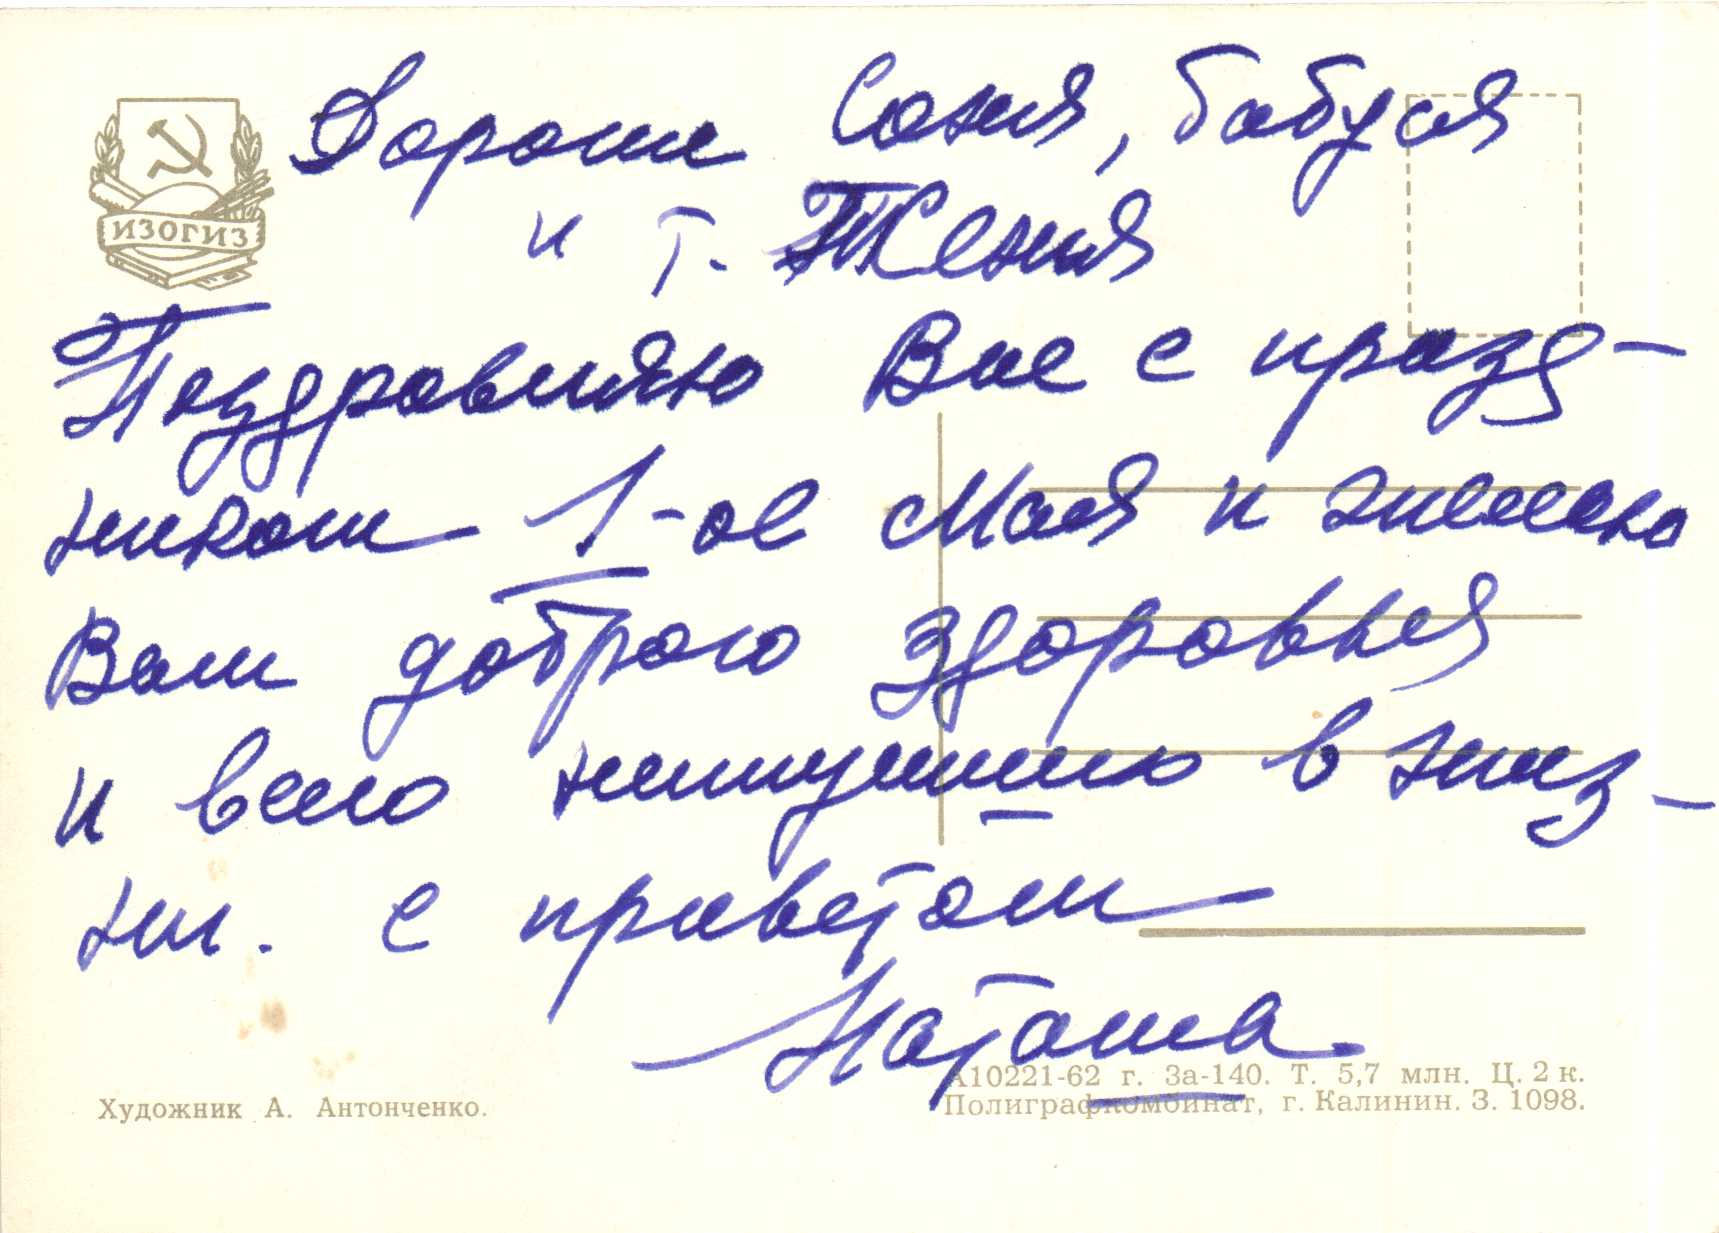 ИЗОГИЗ
Дорогие Соня, бабуся
и т. Женя
Поздравляю Вас с празд-
ником 1-ое Мая и желаю
Вам доброго здоровья
и всего наилучшего в жиз-
ни. с приветом
Наташа.
Художник А. Антонченко.
А10221-62 г. За-140. Т. 5,7 млн. Ц. 2 к.
Полиграфкомбинат, г. Калинин. З. 1098.